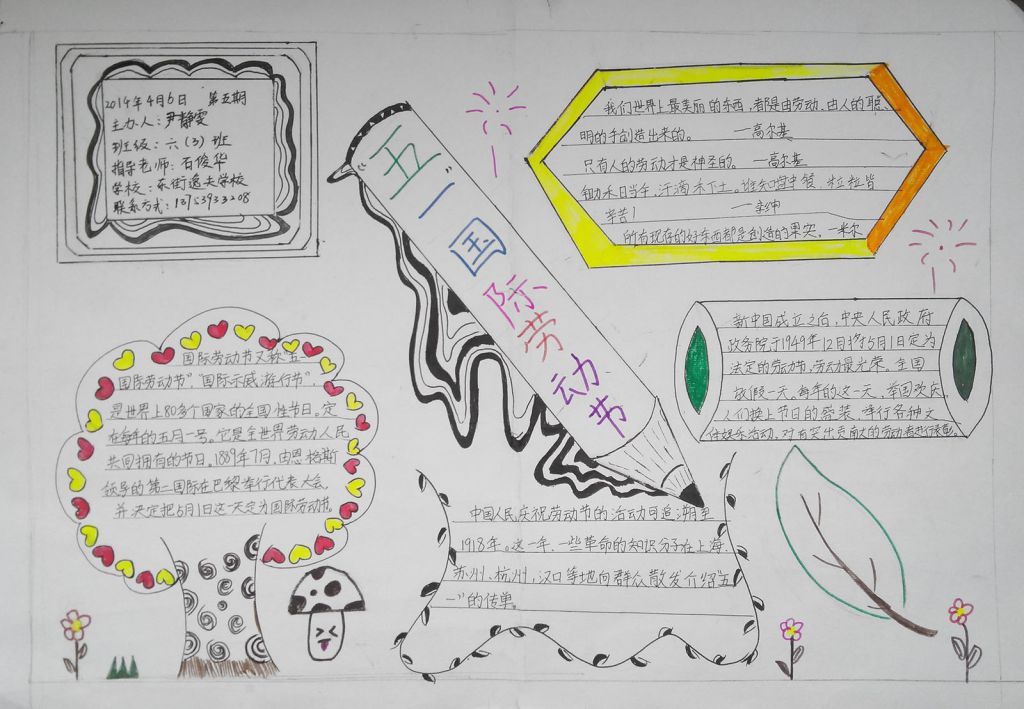 2014年4月6日 第五期
主办人：尹静雯
班级：六（3）班
指导老师：石俊华
学校：东街逸夫学校
联系方式：13753933208
五一国际劳动节
我们世界上最美丽的东西，都是由劳动、由人的聪
明的手创造出来的。 —高尔基
只有人的劳动才是神圣的。 —高尔基
锄禾日当午，汗滴禾下土。谁知盘中餐，粒粒皆
辛苦！ —李绅
所有现存的好东西都是创造的果实。—米尔
新中国成立之后，中央人民政府
政务院于1949年12月将5月1日定为
法定的劳动节，劳动最光荣。全国
放假一天。每年的这一天，举国欢庆，
人们换上节日的盛装，举行各种文
体娱乐活动，对有突出贡献的劳动者进行表彰。
国际劳动节又称"五一
国际劳动节"，"国际示威游行节"，
是世界上80多个国家的全国性节日。定
在每年的五月一号。它是全世界劳动人民
共同拥有的节日。1889年7月，由恩格斯
领导的第二国际在巴黎举行代表大会，
并决定把5月1日这一天定为国际劳动节。
中国人民庆祝劳动节的活动可追溯至
1918年。这一年，一些革命的知识分子在上海、
苏州、杭州、汉口等地向群众散发介绍"五
一"的传单。